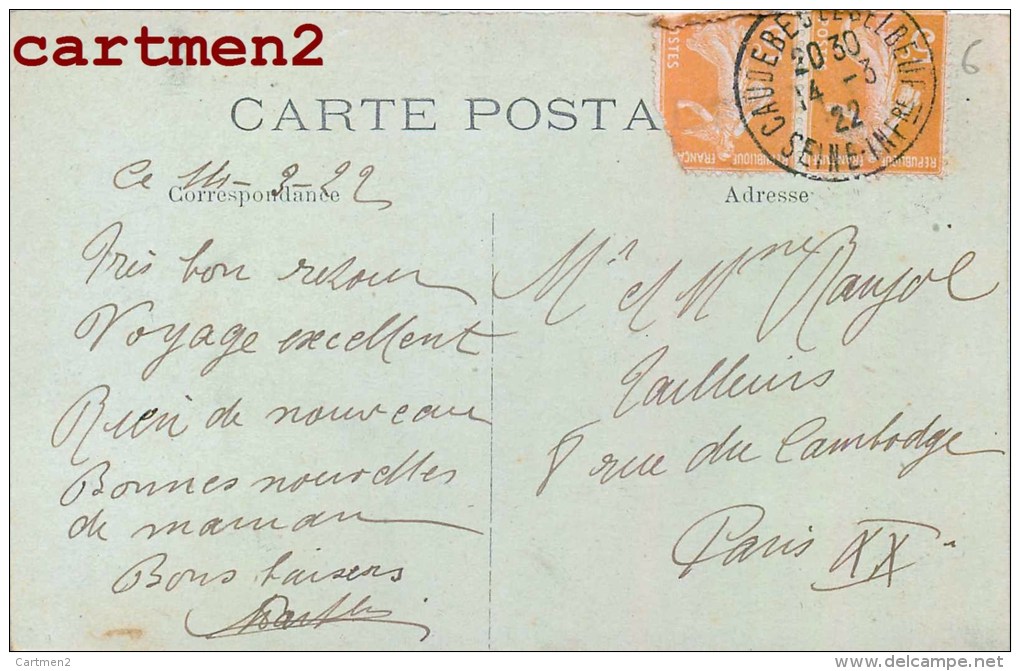 cartmen2
CARTE POSTA
CAUDEBEC LES ELBEUF
20 30
14 - 3
22
SEINE-INFRE
POSTES
REPUBLIQUE FRANCA
REPUBLIQUE FRANÇAISE
6
Ce 14-3-22
Correspondance
Adresse
Très bon retour
Voyage excellent
Rien de nouveau
Bonnes nouvelles
de maman
Bons baisers
Mr et Mme
Tailleurs
8 rue du Cambodge
Paris XX
Cartmen2